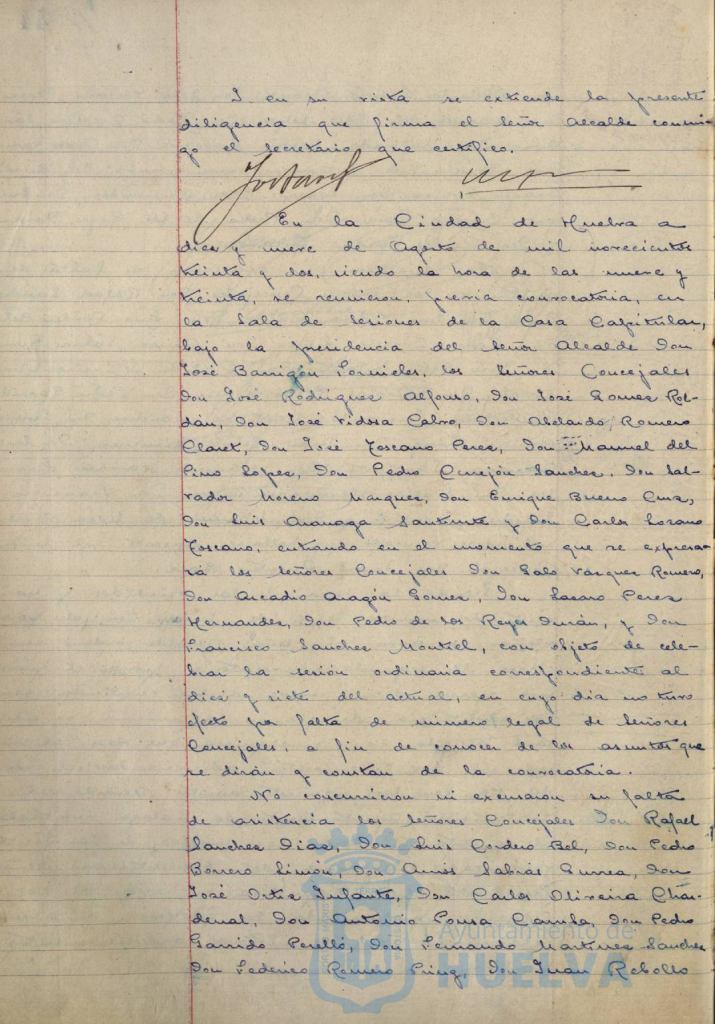 Y en su vista se extiende la presente
diligencia que firma el Señor Alcalde conmi-
go el Secretario que certifico.
En la Ciudad de Huelva a
diez y nueve de Agosto de mil novecientos
treinta y dos, siendo la hora de las nueve y
treinta, se reunieron, previa convocatoria, en
la Sala de Sesiones de la Casa Capitular,
bajo la presidencia del Señor Alcalde Don
José Barrigón Fornieles, los Señores Concejales
Don José Rodríguez Alfonso, Don José Gomez Rol-
dán, Don José Vidosa Calvo, Don Abelardo Romero
Claret, Don José Toscano Perez, Don Manuel del
Pino Lopez, Don Pedro Cerejón Sanchez, Don Sal-
vador Moreno Marquez, Don Enrique Bueno Cruz,
Don Luis Aramaga y Don Carlos Lozano
Toscano, entrando en el momento que se expresa-
rá los Señores Concejales Don Galo Vazquez Romero,
Don Arcadio Aragón Gomez, Don Lazaro Perez
Hernandez, Don Pedro de los Reyes Durán, y Don
Francisco Sanchez Montiel, con objeto de cele-
brar la sesión ordinaria correspondiente al
diez y siete del actual, en cuyo dia no tuvo
efecto por falta de número legal de Señores
Concejales, a fin de conocer de los asuntos que
se dirán y constan de la convocatoria.
No concurrieron ni excusaron su falta
de asistencia los Señores Concejales Don Rafael
Sanchez Diaz, Don Luis Cordero Bel, Don Pedro
Borrero Limón, Don Amós Sabrás Gurrea, Don
José Ortiz Infante, Don Carlos Oliveira Char-
denal, Don Antonio Pousa Camba, Don Pedro
Garrido Perelló, Don Fernando Martinez Sanchez
Don Federico Romero Don Juan Rebollo
Ayuntamiento de
HUELVA